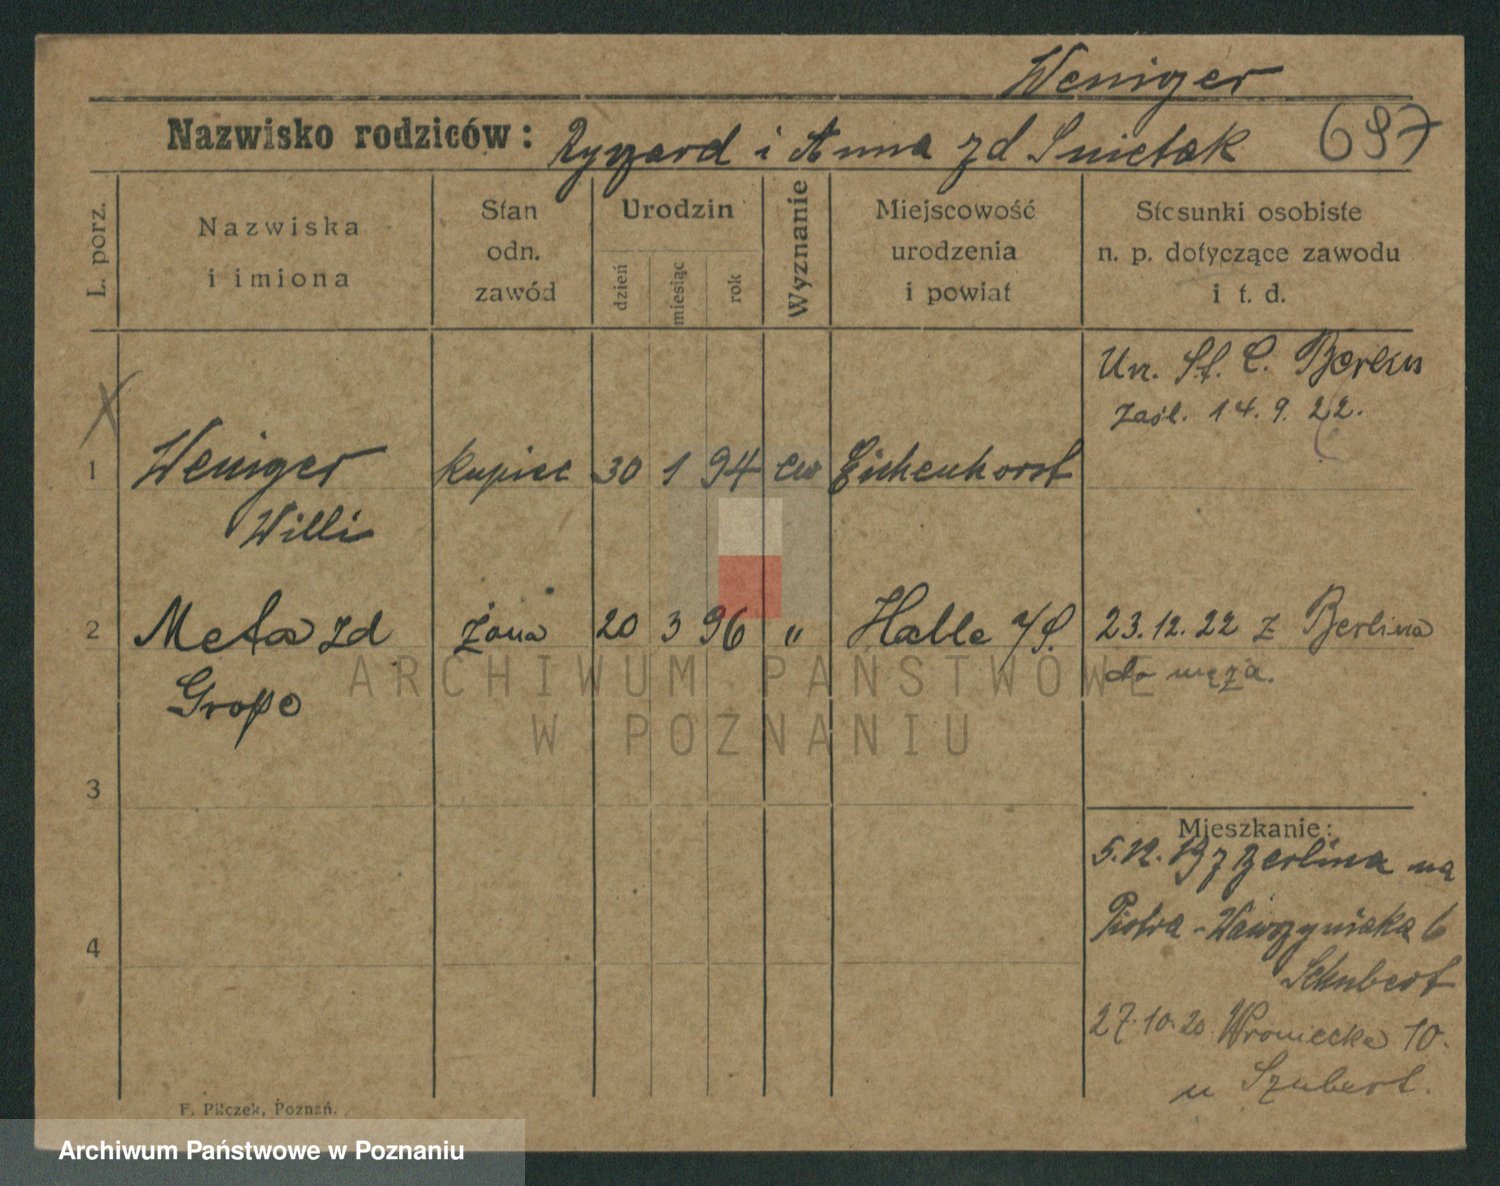 Weniger
Nazwisko rodziców: Ryszard i Anna zd Smietak 697
L. porz.
Nazwiska
i imiona
Stan
odn.
zawód
Urodzin
dzień
miesiąc
rok
Wyznanie
Miejscowość
urodzenia
i powiat
Stosunki osobiste
n. p. dotyczące zawodu
i t. d.
Ur. St. C. Berlin
zaśl. 14. 9. 22.
1 Weniger kupiec 30 1 94 ew Eichenhorst
Willi
2 Meta zd żona 20 3 96 " Halle a/S. 23.12.22 z Berlina
do męża.
Grope
3
4
Mieszkanie:
5.12. 19 z Berlina na
Piotra-Wawrzyniaka 6
Schubert
27.10.20 Wroniecka 10.
u Szubert.
F. Pilczek, Poznań.
ARCHIWUM PAŃSTWOWE
W POZNANIU
Archiwum Państwowe w Poznaniu